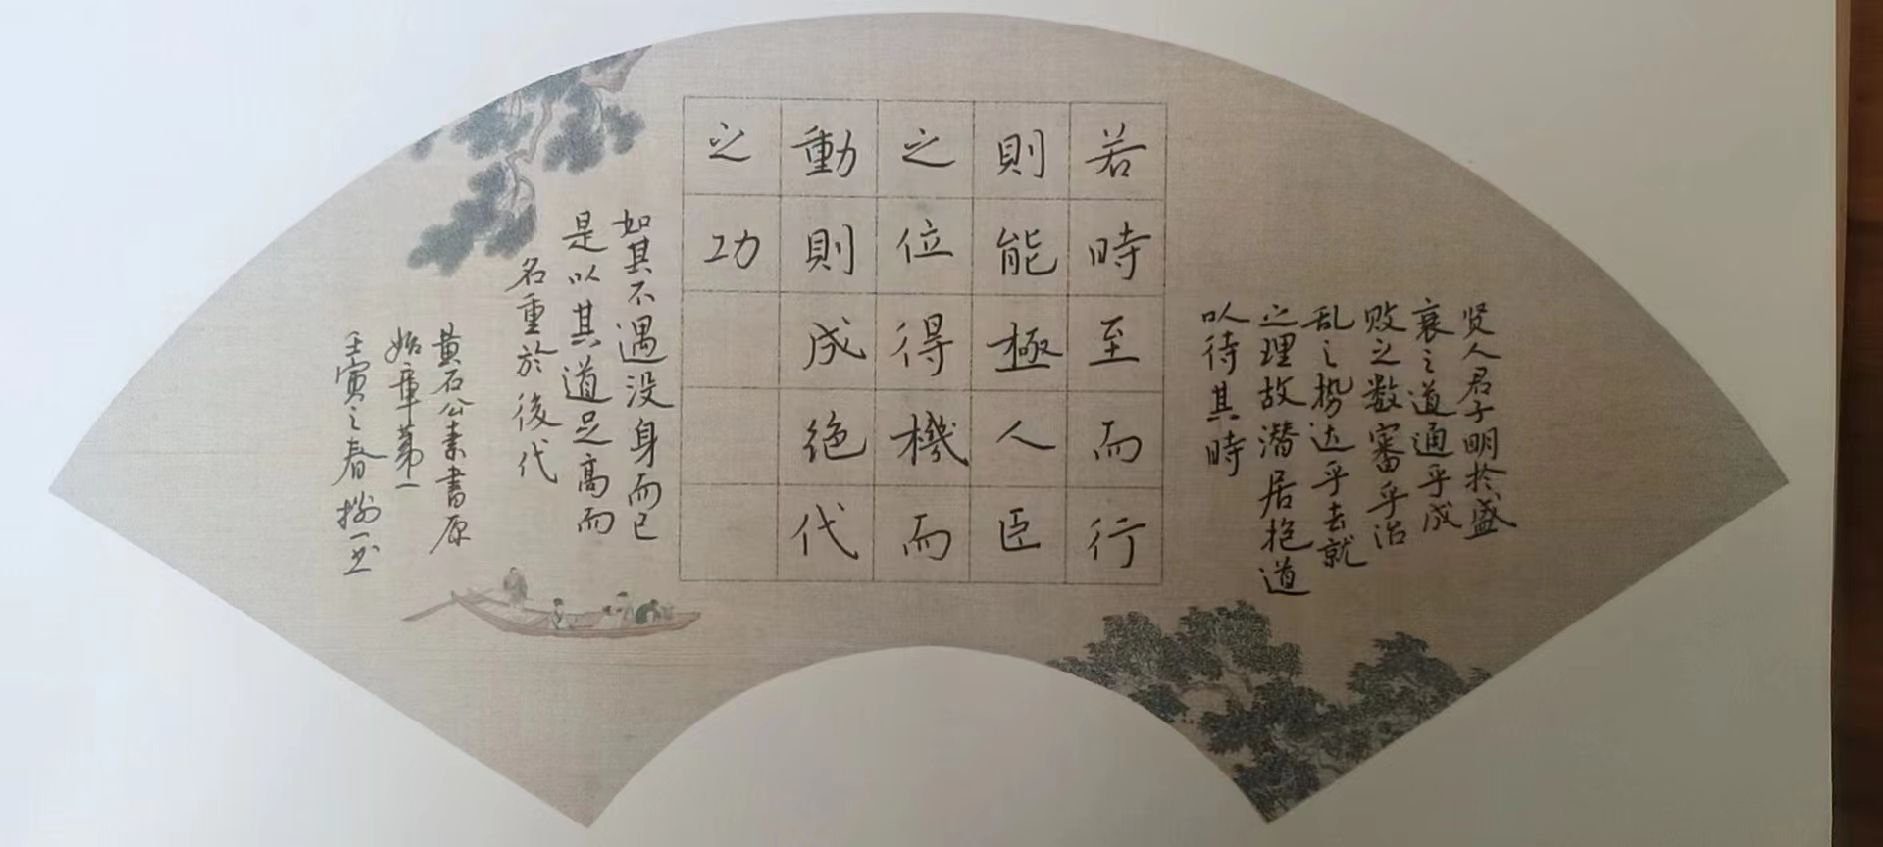 贤人君子明於盛
衰之道通乎成
败之数審乎治
乱之势达乎去就
之理故潜居抱道
以待其時
若時至而行
則能極人臣
之位得機而
動則成绝代
之功
如其不遇没身而已
是以其道足高而
名重於後代
黄石公素書原
始章第一
壬寅之春